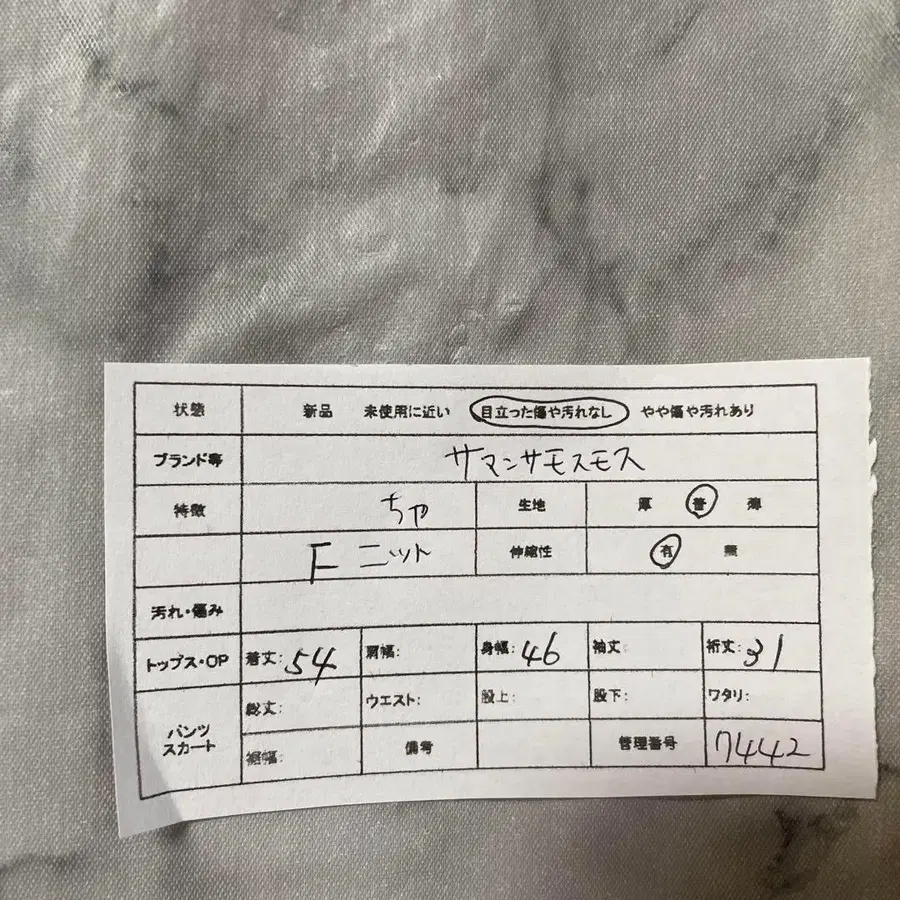 状態 新品 未使用に近い 目立った傷や汚れなし やや傷や汚れあり
ブランド等 サマンサモスモス
特徴 ちゃ 生地 厚 普 薄
F ニット 伸縮性 有 無
汚れ・傷み
トップス・OP 着丈: 54 肩幅: 身幅: 46 袖丈: 裄丈: 31
パンツ スカート 総丈: ウエスト: 股上: 股下: ワタリ:
裾幅: 備考 管理番号 7442